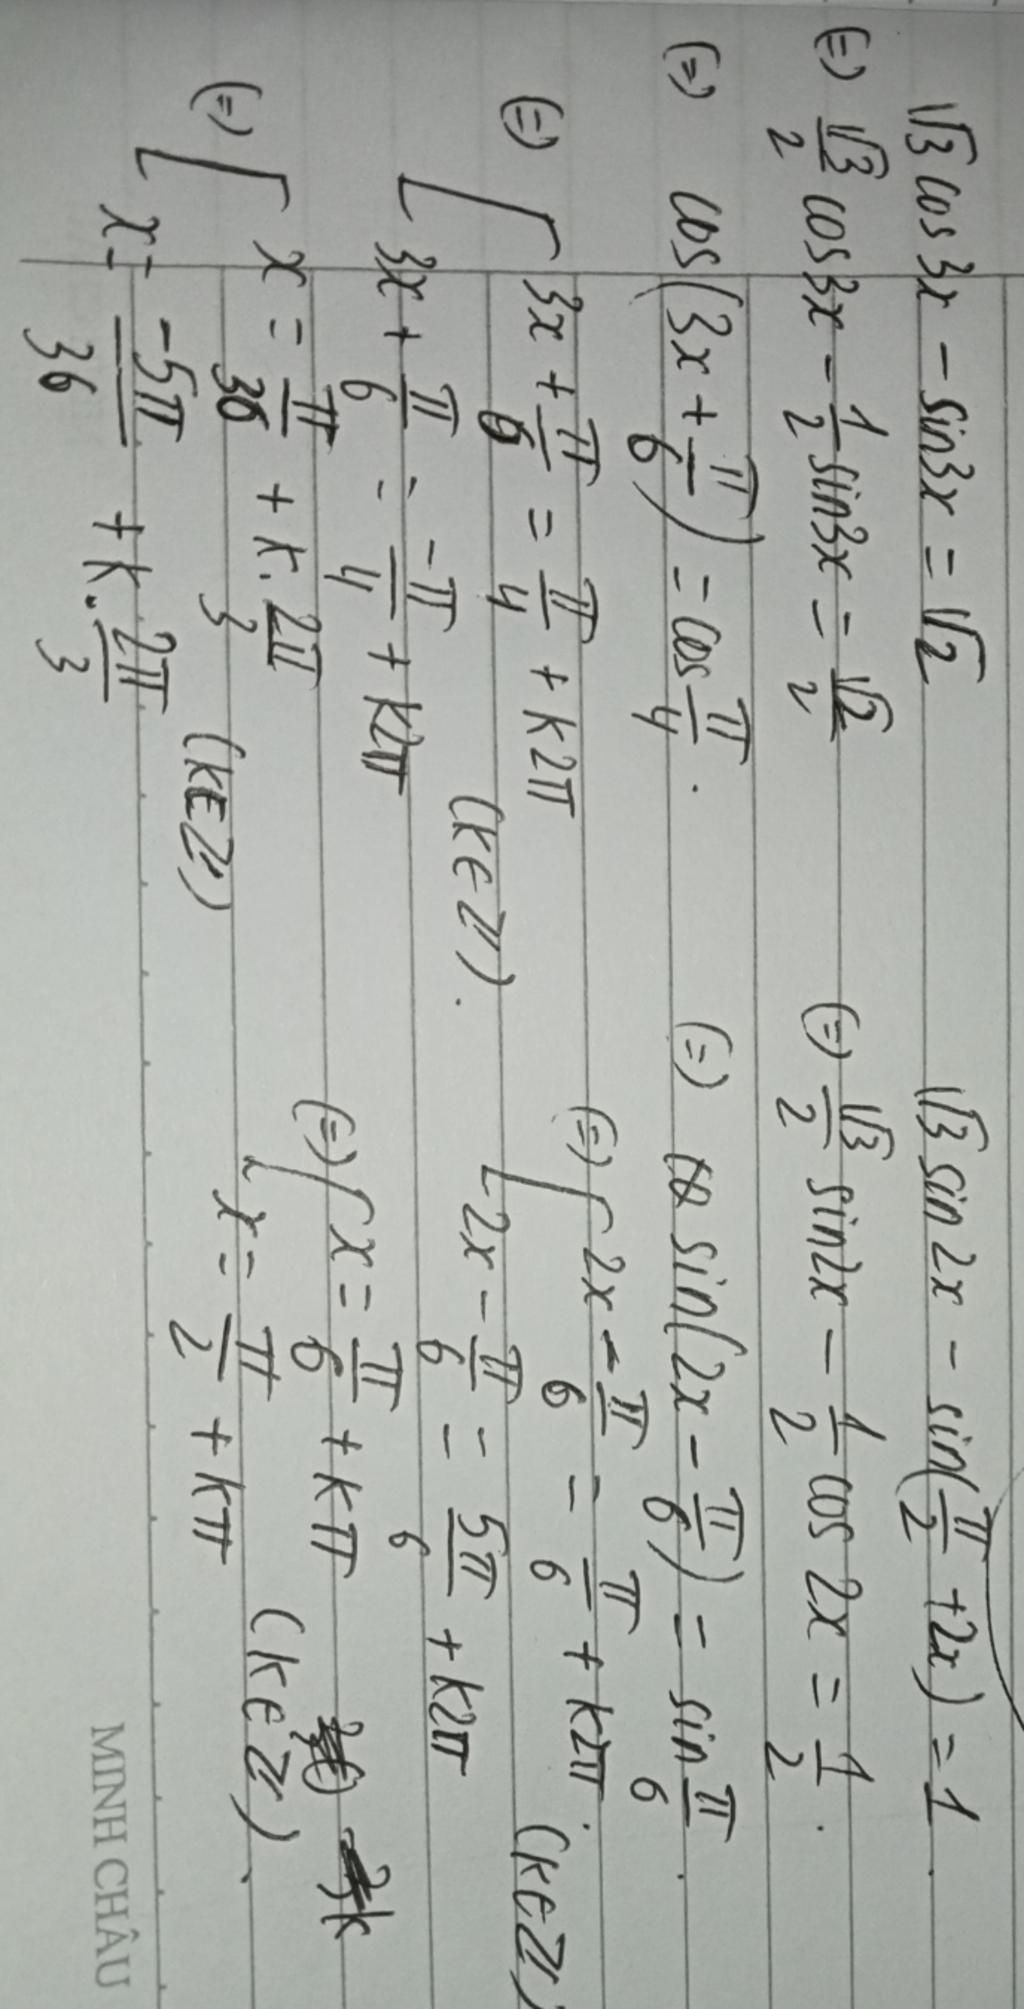 √3 cos 3x - sin3x = √2
(=) √3/2 cos 3x - 1/2 sin3x = √2/2
(=) cos(3x + π/6) = cos π/4.
(=) [ 3x + π/6 = π/4 + k2π
3x + π/6 = -π/4 + k2π (k∈Z).
(=) [ x = π/36 + k. 2π/3
x = -5π/36 + k. 2π/3 (k∈Z)
√3 sin 2x - sin(π/2 + 2x) = 1.
(=) √3/2 sin2x - 1/2 cos 2x = 1/2.
(=) sin(2x - π/6) = sin π/6.
(=) [ 2x - π/6 = π/6 + k2π.
2x - π/6 = 5π/6 + k2π (k∈Z)
(=) [ x = π/6 + kπ
x = π/2 + kπ (k∈Z).
MINH CHÂU